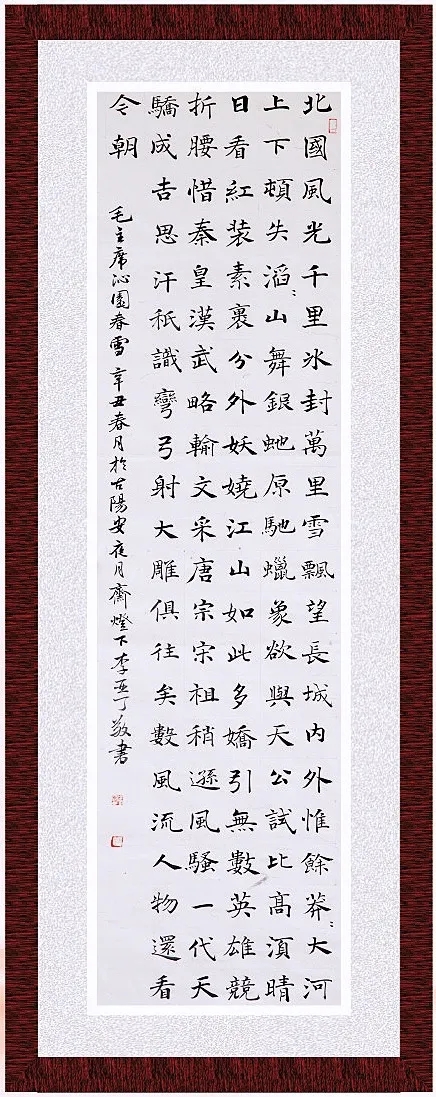 北國風光千里氷封萬里雪飄望長城内外惟餘莽〻大河
上下頓失滔〻山舞銀虵原馳蠟象欲與天公試比髙湏晴
日看紅装素裹分外妖嬈江山如此多嬌引無數英雄競
折腰惜秦皇漢武略輸文采唐宗宋祖稍遜風騷一代天
驕成吉思汗秖識彎弓射大雕俱往矣數風流人物還看
今朝
毛主席沁園春雪辛丑春月於古陽安夜月齋燈下李亞丁敬書